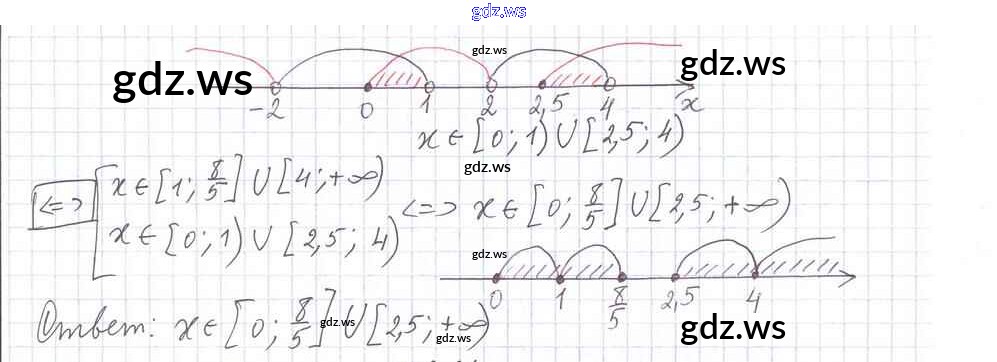 gdz.ws
gdz.ws
gdz.ws gdz.ws
-2 0 1 2 2,5 4 x
x ∈ [0; 1) ∪ [2,5; 4)
gdz.ws
<=> [ x ∈ [1; 8/5] ∪ [4; +∞)
x ∈ [0; 1) ∪ [2,5; 4)
<=> x ∈ [0; 8/5] ∪ [2,5; +∞)
gdz.ws
0 1 8/5 2,5 4
Ответ: x ∈ [0; 8/5] ∪ [2,5; +∞)
gdz.ws
gdz.ws
gdz.ws